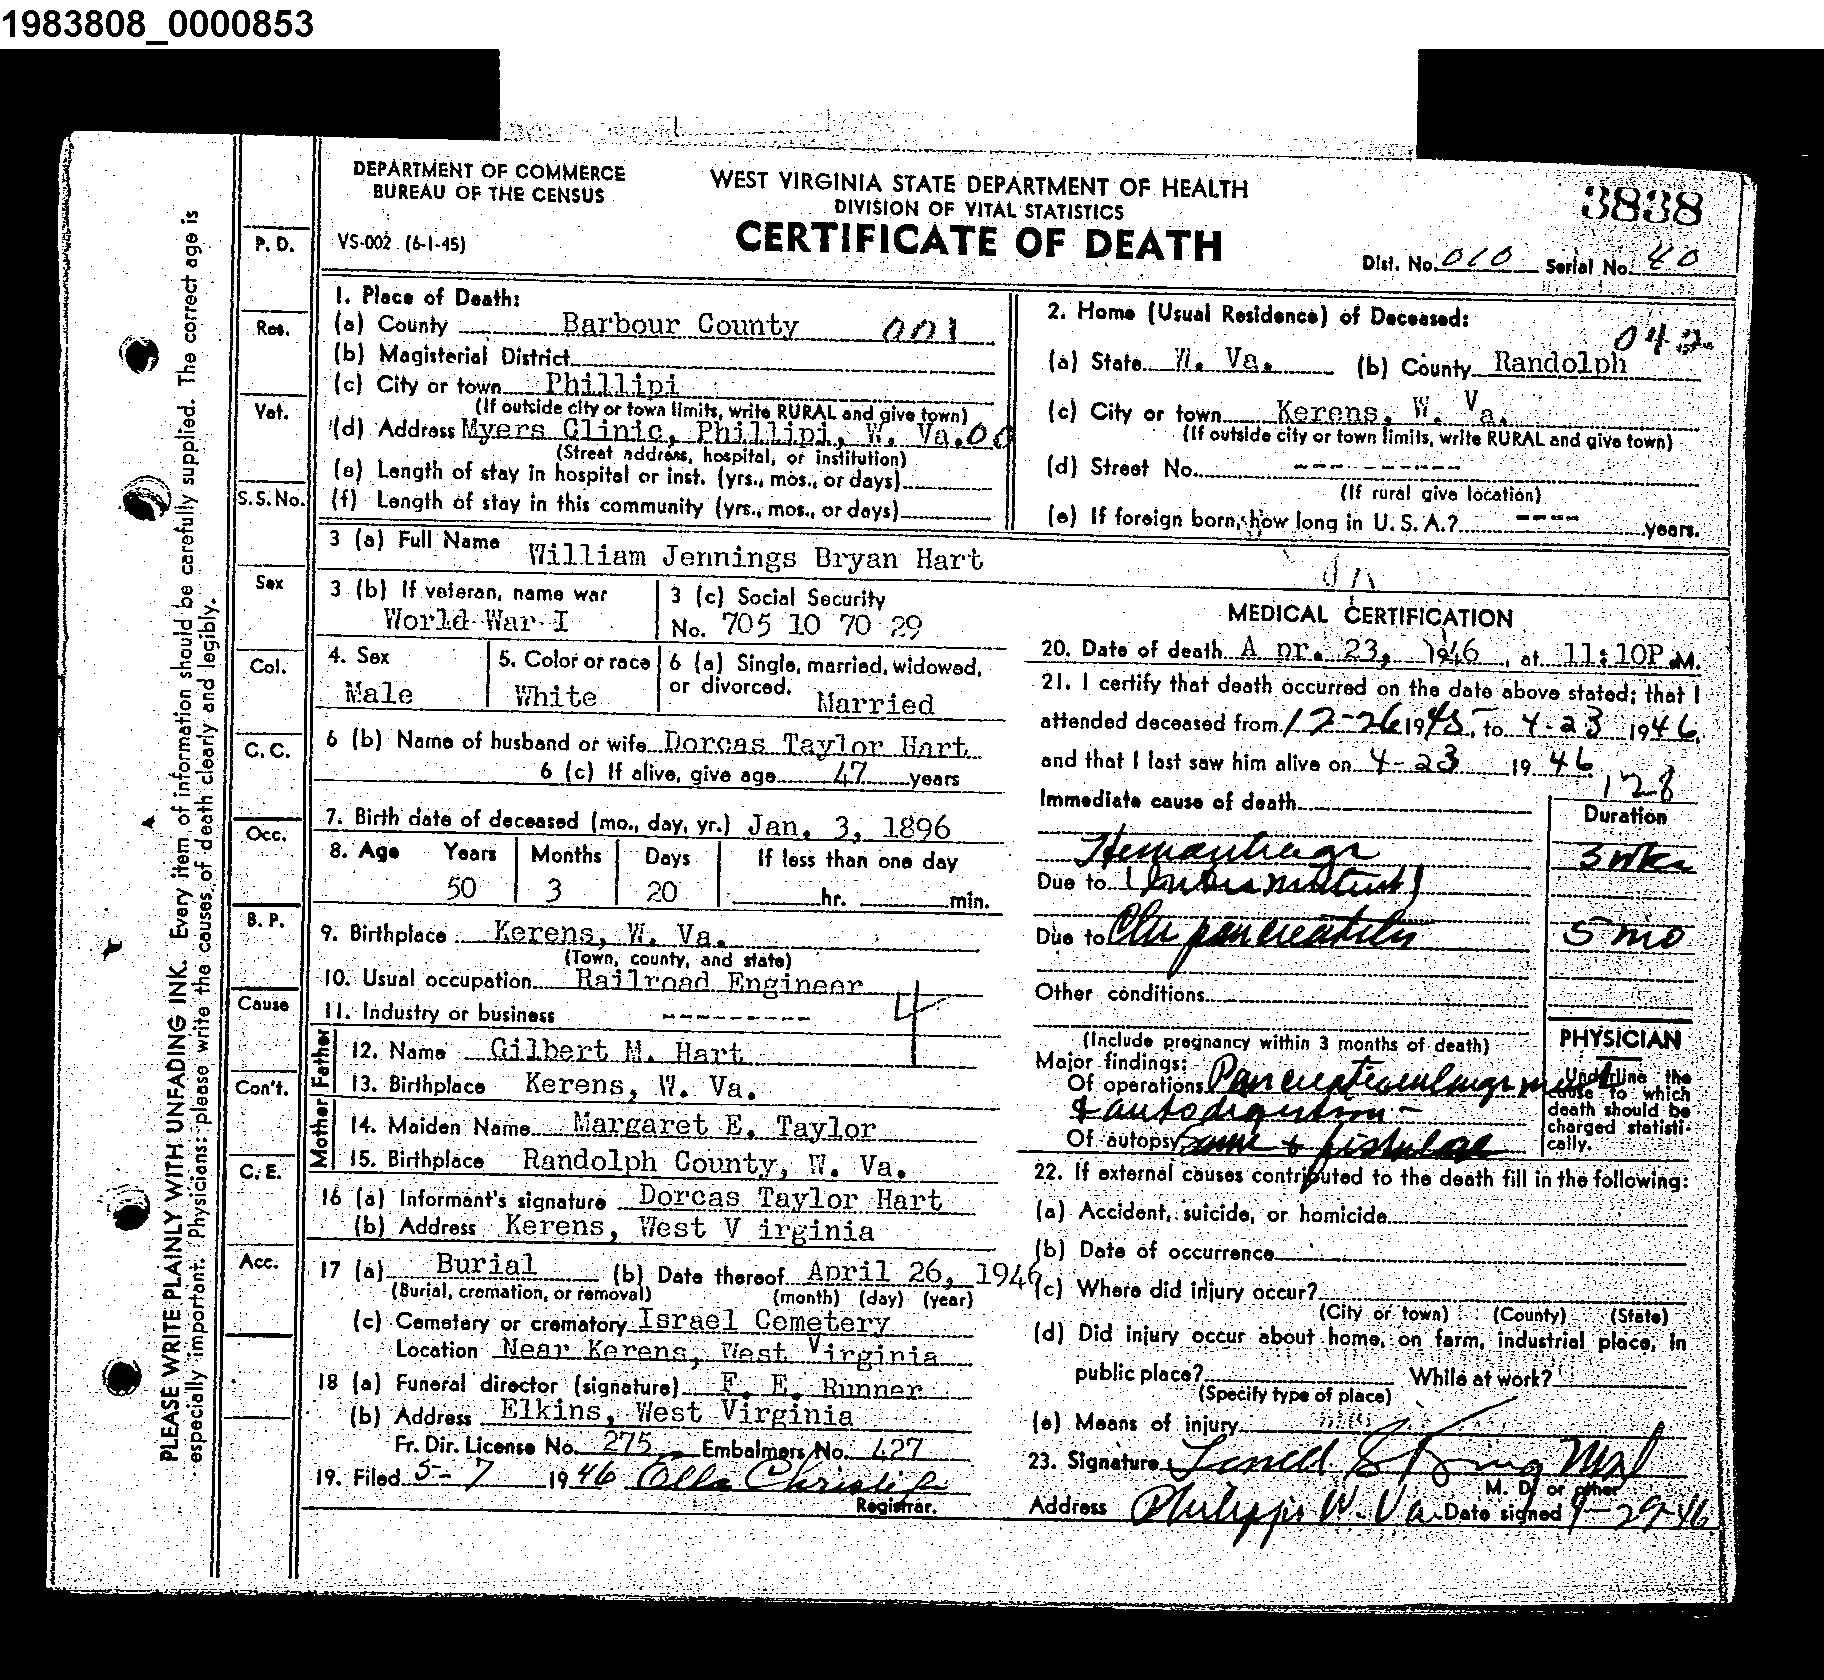 1983808_0000853
DEPARTMENT OF COMMERCE
BUREAU OF THE CENSUS
WEST VIRGINIA STATE DEPARTMENT OF HEALTH
DIVISION OF VITAL STATISTICS
3838
VS-002 (6-1-45)
CERTIFICATE OF DEATH
Dist. No. 010 Serial No. 40
PLEASE WRITE PLAINLY WITH UNFADING INK. Every item of information should be carefully supplied. The correct age is
especially important. Physicians: please write the causes of death clearly and legibly.
P. D.
Res.
Vet.
S.S. No.
Sex
Col.
C. C.
Occ.
B. P.
Cause
Con't.
C. E.
Acc.
1. Place of Death:
(a) County Barbour County 001
(b) Magisterial District
(c) City or town Phillipi
(If outside city or town limits, write RURAL and give town)
(d) Address Myers Clinic, Phillipi, W. Va. 00
(Street address, hospital, or institution)
(e) Length of stay in hospital or inst. (yrs., mos., or days)
(f) Length of stay in this community (yrs., mos., or days)
2. Home (Usual Residence) of Deceased:
042
(a) State W. Va. (b) County Randolph
(c) City or town Kerens, W. Va.
(If outside city or town limits, write RURAL and give town)
(d) Street No. ---------
(If rural give location)
(e) If foreign born, how long in U. S. A.? ---- years.
3 (a) Full Name William Jennings Bryan Hart
3 (b) If veteran, name war
World War I
3 (c) Social Security
No. 705 10 70 29
4. Sex
Male
5. Color or race
White
6 (a) Single, married, widowed,
or divorced. Married
6 (b) Name of husband or wife Dorcas Taylor Hart
6 (c) If alive, give age 47 years
7. Birth date of deceased (mo., day, yr.) Jan. 3, 1896
8. Age Years Months Days If less than one day
50 3 20 hr. min.
9. Birthplace Kerens, W. Va.
(Town, county, and state)
10. Usual occupation Railroad Engineer
11. Industry or business --------- 4
Father
12. Name Gilbert M. Hart
13. Birthplace Kerens, W. Va.
Mother
14. Maiden Name Margaret E. Taylor
15. Birthplace Randolph County, W. Va.
16 (a) Informant's signature Dorcas Taylor Hart
(b) Address Kerens, West V irginia
17 (a) Burial (b) Date thereof April 26, 1946
(Burial, cremation, or removal) (month) (day) (year)
(c) Cemetery or crematory Israel Cemetery
Location Near Kerens, West Virginia
18 (a) Funeral director (signature) F. E. Runner
(b) Address Elkins, West Virginia
Fr. Dir. License No. 275 Embalmers No. 427
19. Filed 5-7 1946 Ella
Registrar.
MEDICAL CERTIFICATION
20. Date of death A pr. 23, 1946, at 11:10P.M.
21. I certify that death occurred on the date above stated; that I
attended deceased from 12-26 1945, to 4-23 1946,
and that I last saw him alive on 4-23 19 46
128
Immediate cause of death
Duration
Hemorrhage 3 wks
Due to (Intermittent)
Due to Chr pancreatitis 5 mo
Other conditions
(Include pregnancy within 3 months of death)
PHYSICIAN
Underline the
cause to which
death should be
charged statisti-
cally.
Major findings:
Of operations Pancreatic enlargement
& autodigestion -
Of autopsy Same + fistulae
22. If external causes contributed to the death fill in the following:
(a) Accident, suicide, or homicide
(b) Date of occurrence
(c) Where did injury occur?
(City or town) (County) (State)
(d) Did injury occur about home, on farm, industrial place, in
public place? While at work?
(Specify type of place)
(e) Means of injury
23. Signature
M. D. or other
Address Philippi W. Va. Date signed 4-29-46